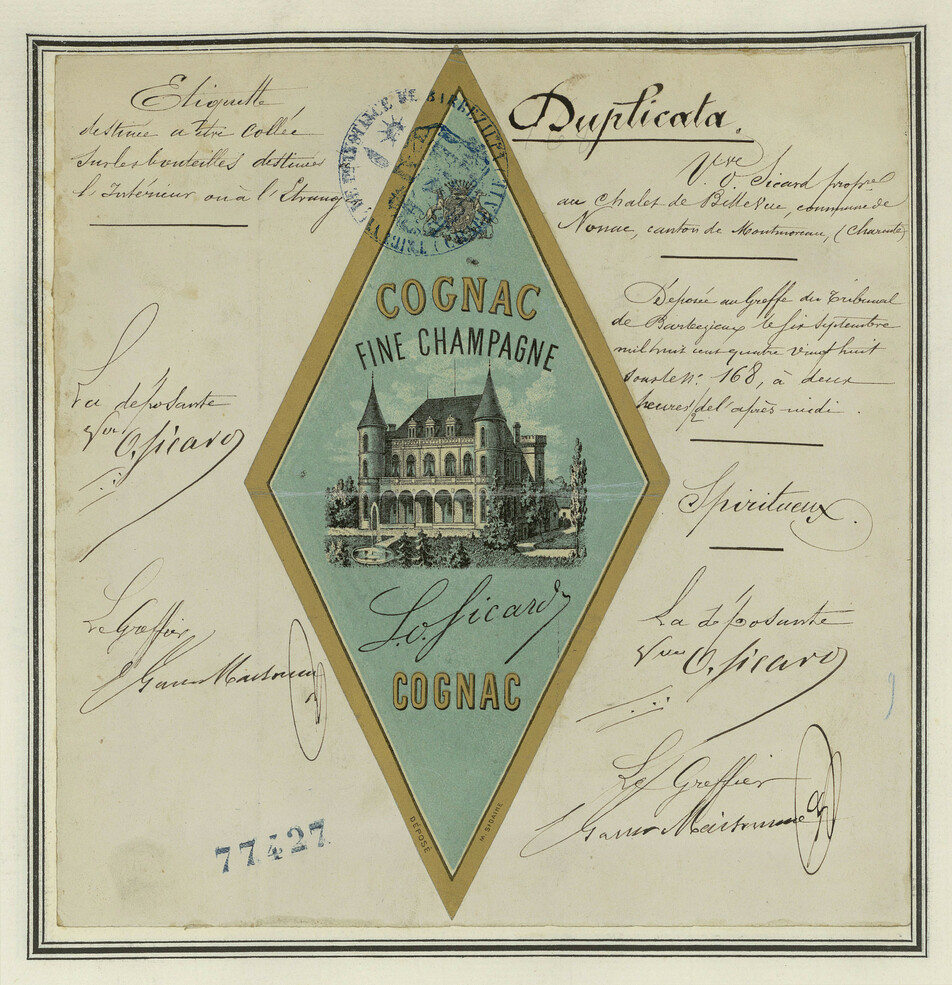 Etiquette
destinée a être collée
sur les bouteilles destinées
l'Intérieur ou à l'Etrang
La déposante
Vve O. Sicard
Le Greffier
77427
TRIBUNAL DE 1ère INSTANCE DE BARBEZIEUX
COGNAC
FINE CHAMPAGNE
Vo. Sicard
COGNAC
DÉPOSÉ
M. SICAIRE
Duplicata.
Vve O. Sicard propre
au chalet de Bellevue, commune de
Nonac, canton de Montmoreau, (Charente)
Déposée au Greffe du Tribunal
de Barbezieux le six Septembre
mil huit cent quatre vingt huit
sous le n: 168, à deux
heures de l'après-midi.
Spiritueux.
La déposante
Vve O. Sicard
Le Greffier